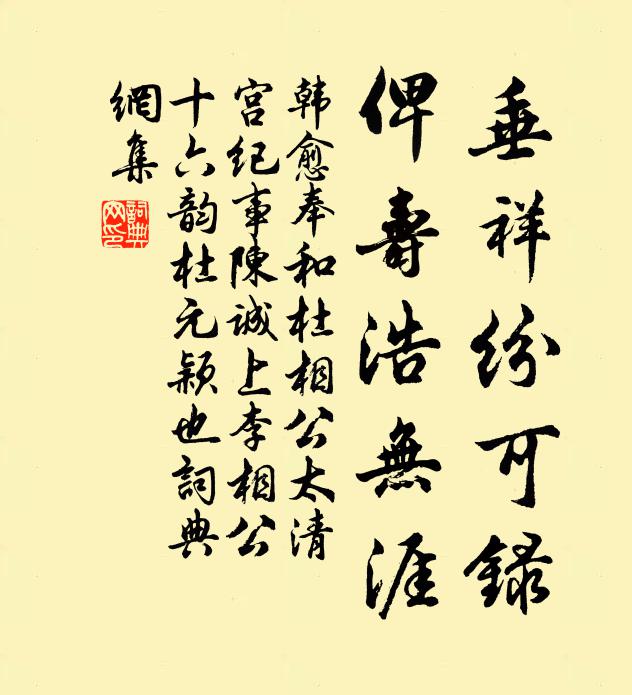 垂祥纷可録
俾壽浩無涯
韩愈奉和杜相公太清
宫纪事陳誠上李相公
十六韵杜元颖也詞典
網集
詞典
网印